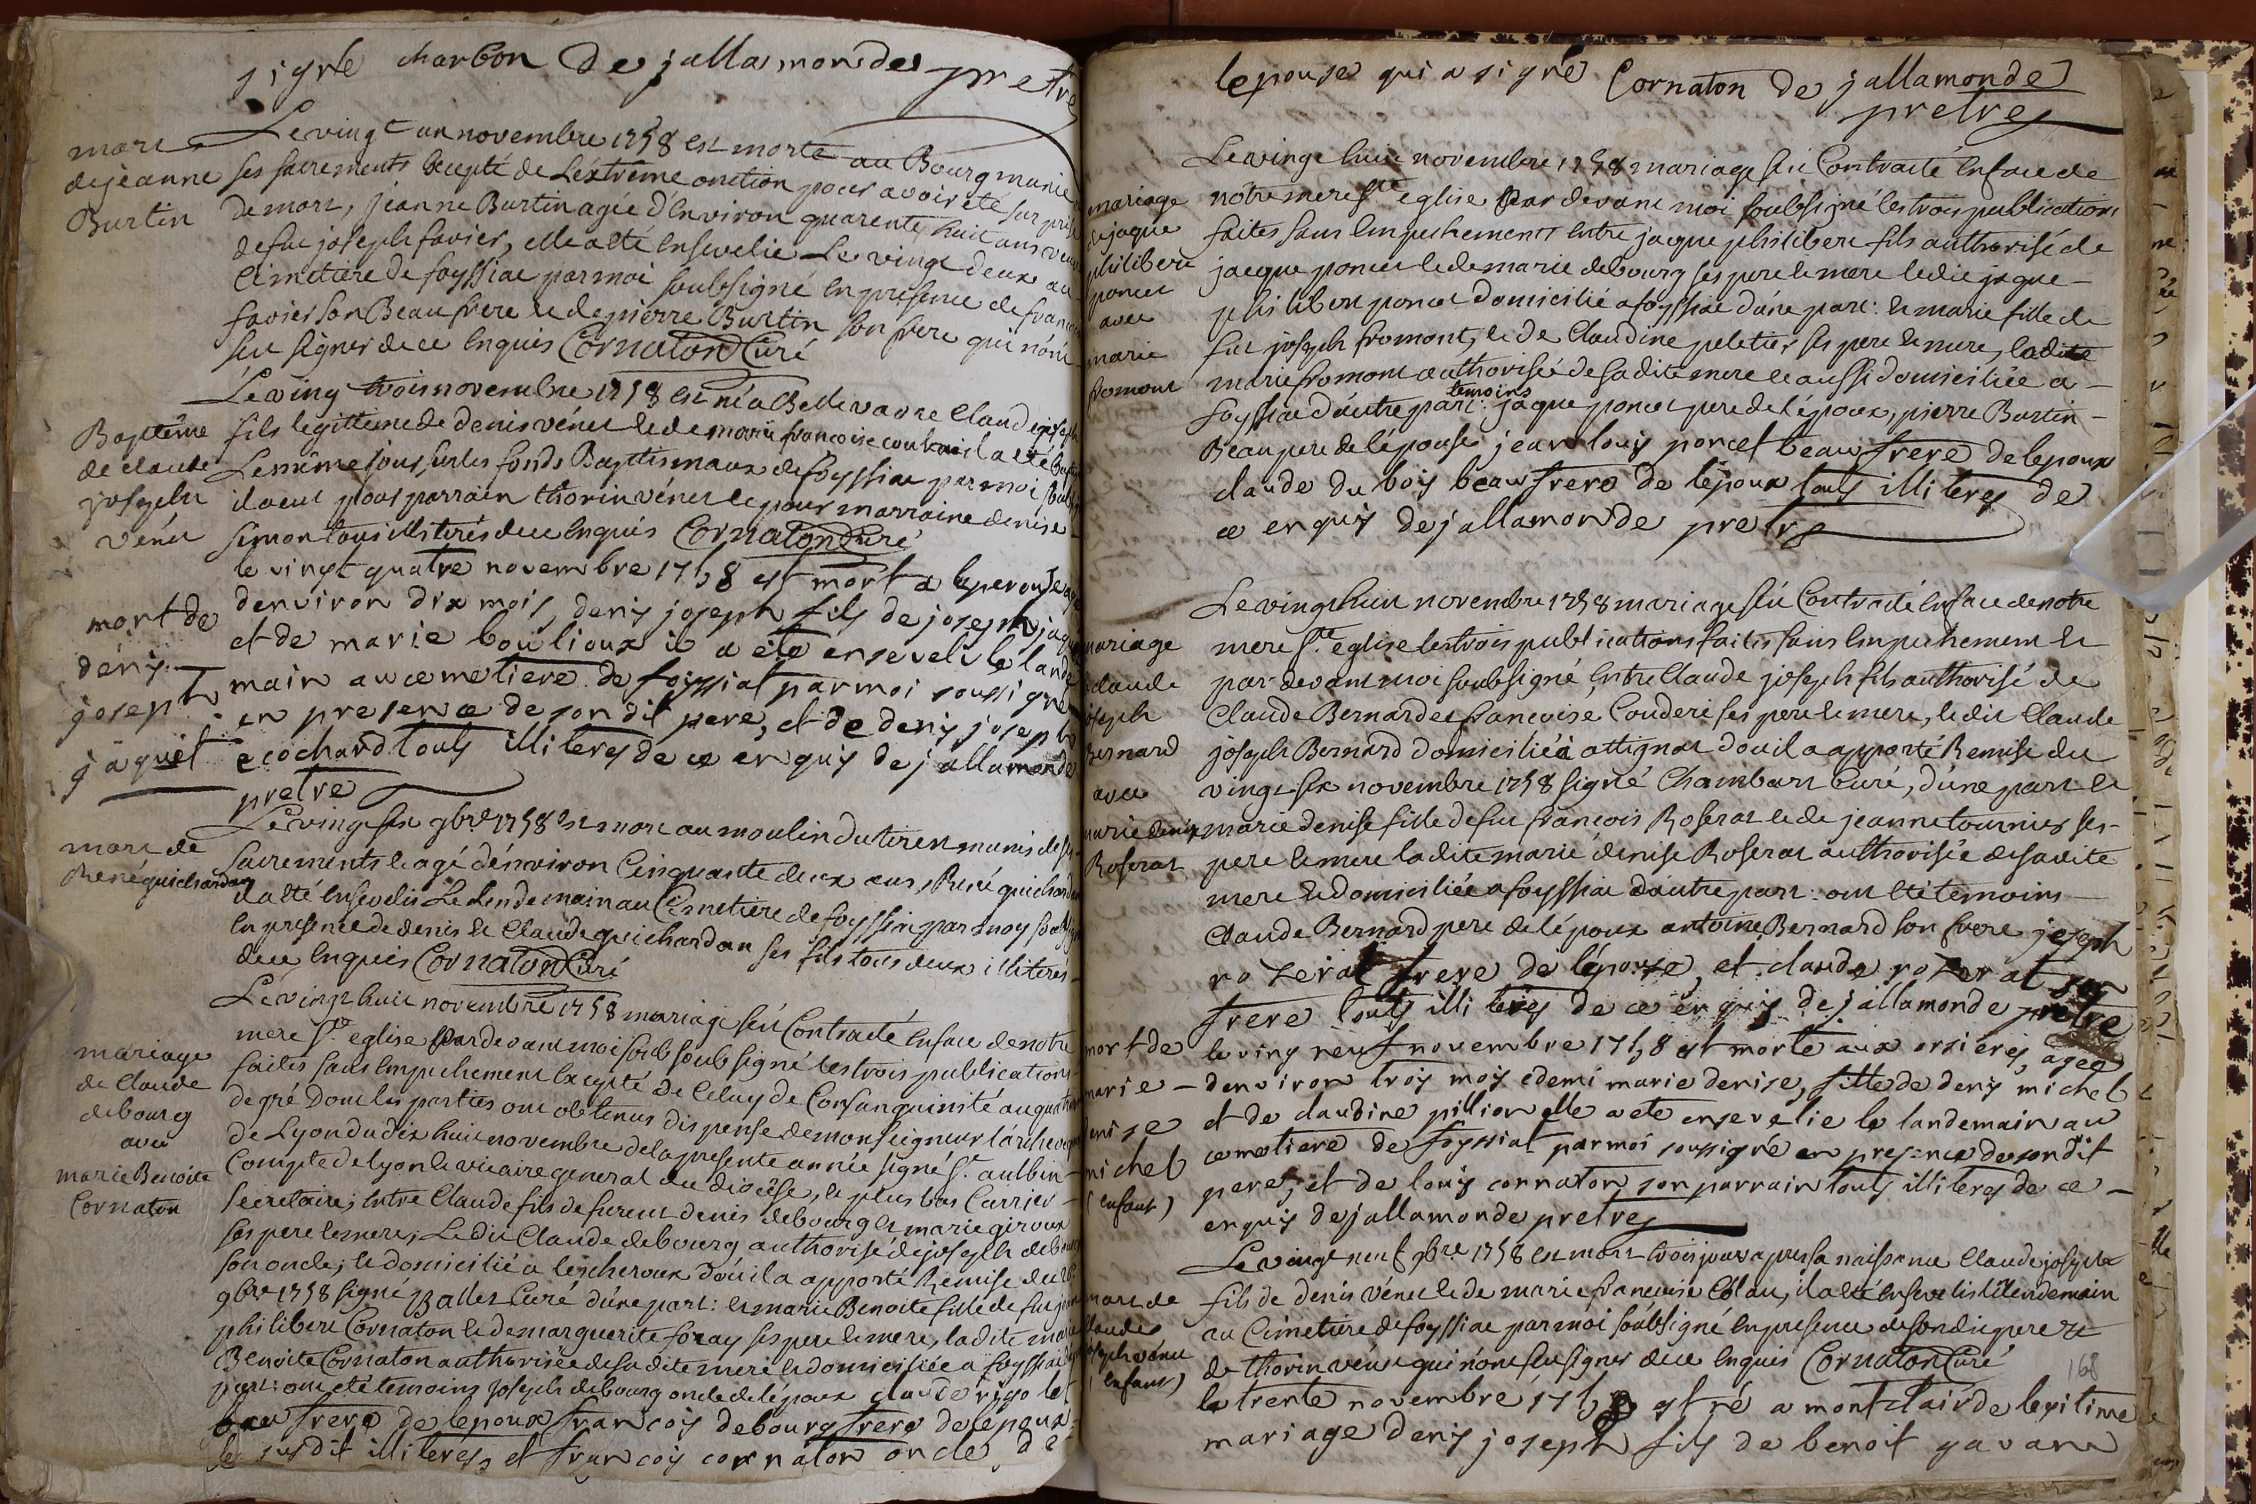 signé charbon de jallamondes pretre
mort
de jeanne
Burtin
Le vingt un novembre 1758 est morte au Bourg munie
ses sacrements excepté de L'extrême onction pour avoir eté surprise
de mort, jeanne Burtin agée d'Environ quarente huit ans veuve
de feu joseph favier, elle a eté Ensevelie Le vingt deux au
Cimetiere de foyssiac par moi soubsigné En presence de francois
favier son Beaufrere et de pierre Burtin son frere qui n'ont
seu signer de ce Enquis Cornaton Curé
Baptême
de claude
joseph
vénet
Le ving trois novembre 1758 est né a Bellevavre Claude joseph
fils legitime de denis vénet et de marie francoise il a eté Baptisé
Le même jour sur les fonds Baptismaux de foyssiac par moi
il a eut pour parrain thorin vénet et pour marraine denise
simon tous illiterés de ce Enquis Cornaton Curé
mort de
denis
joseph
jaquet
le vingt quatre novembre 1758 est mort a leperouse agé
denviron dix mois, denis joseph fils de joseph jaquet
et de marie boulioux il a eté enseveli le lande
main au cemetiere de foissiat par moi soussigné
en presence de son dit pere, et de denis joseph
ecochard touts illiteres de ce enquis de jallamonde
pretre
mort de
René guichardan
Le vingt six 9bre 1758 est mort au moulin du tiret munis de ses
sacrements et agé d'environ Cinquante deux ans, René guichardan
il a eté Ensevelis Le Lendemain au Cimetiere de foyssia par moy
En presence de denis et Claude guichardan ses fils tous deux illiteres
de ce Enquis Cornaton Curé
mariage
de Claude
debourg
avec
marie Benoite
Cornaton
Le vingt huit novembre 1758 mariage feu Contracté En face de notre
mere Ste eglise Pardevant moi soub soub signé les trois publications
faites sans Empechement Excepté De Celuy de Consanguinité au quatrieme
degré Dont les parties ont obtenus dispense de monseigneur l'archeveque
de Lyon du dix huit novembre de la presente année signé St. aulbin
Compte de lyon et vicaire general du diocèse, et plus bas Carrier
secretaire; Entre Claude fils de furent denis debourg et marie giroux
ses pere et mere, Le dit Claude debourg authorisé de joseph debourg
son oncle, et domicilié a lescheroux d'ou il a apporté Remise du
9bre 1758 signé Ballet Curé d'une part: et marie Benoite fille de feu jean
philibert Cornaton et de marguerite foray ses pere et mere, la dite marie
Benoite Cornaton authorisée de sa dite mere et domiciliée a foyssiac
part: ont eté temoins joseph debourg oncle de l'epoux claude rigolet
beau frere de lepoux francois debourg frere de lepoux
les susdit illiteres, et francois cornaton oncle de
lepouse qui a signé Cornaton de jallamonde
pretre
mariage
de jaque
philibert
poncet
avec
marie
fromont
Le vingt huit novembre 1758 mariage feu Contracté En face de
notre mere Ste eglise Par devant moi soubsigné les trois publications
faites sans Empechements Entre jacque philibert fils authorisé de
jacque poncet et de marie debourg ses pere et mere le dit jaque
philibert poncet domicilié a foyssiac d'une part: et marie fille de
feu joseph fromont, et de Claudine peletier ses pere et mere, la dite
marie fromont authorisée de sa dite mere et aussi domiciliée a
foyssiac d'autre part: temoins jaque poncet pere de l'époux, pierre Burtin
Beaupere de l'épouse jean louis poncet beau frere de lepoux
claude du bois beau frere de lépoux touts illiteres de
ce enquis de jallamonde pretre
mariage
claude
joseph
Bernard
avec
marie denise
Roserat
Le vingt huit novembre 1758 mariage feu Contracté En face de notre
mere Ste eglise les trois publications faites sans Empechement et
par devant moi soubsigné Entre Claude joseph fils authorisé de
Claude Bernard et francoise Couderi ses pere et mere, le dit Claude
joseph Bernard domicilié à attignat d'ou il a apporté Remise du
vingt six novembre 1758 signé Chambart Curé, d'une part et
marie denise fille de feu francois Roserat et de jeanne tournier ses
pere et mere la dite marie denise Roserat authorisée de sa dite
mere et domiciliée a foyssiac d'autre part: ont eté temoins
Claude Bernard pere de l'époux antoine Bernard son frere joseph
rozerat frere de lépouse, et claude rozerat son
frere touts illiteres de ce enquis de jallamonde pretre
mort de
marie
denise
michel
(enfant)
le ving neuf novembre 1758 est morte aux orsieres, agee
denviron trois mois edemi marie denise, fille de denis michel
et de claudine pillion elle a ete ensevelie le landemain au
cemetiere de foyssiat par moi soussigné en presence de son dit
pere, et de louis cornaton son parrain touts illiteres de ce
enquis de jallamonde pretre
mort de
claude
joseph vénet
(enfant)
Le vingt neuf 9bre 1758 est mort trois jours apres sa naissance Claude joseph
fils de denis vénet et de marie francoise Colau, il a eté Ensevelis le lendemain
au Cimetiere de foyssiac par moi soubsigné En presence de son dit pere et
de thorin vénet qui n'ont seu signer de ce Enquis Cornaton Curé
168
le trente novembre 1758 est né a montclair de legitime
mariage denis joseph fils de benoit gavand